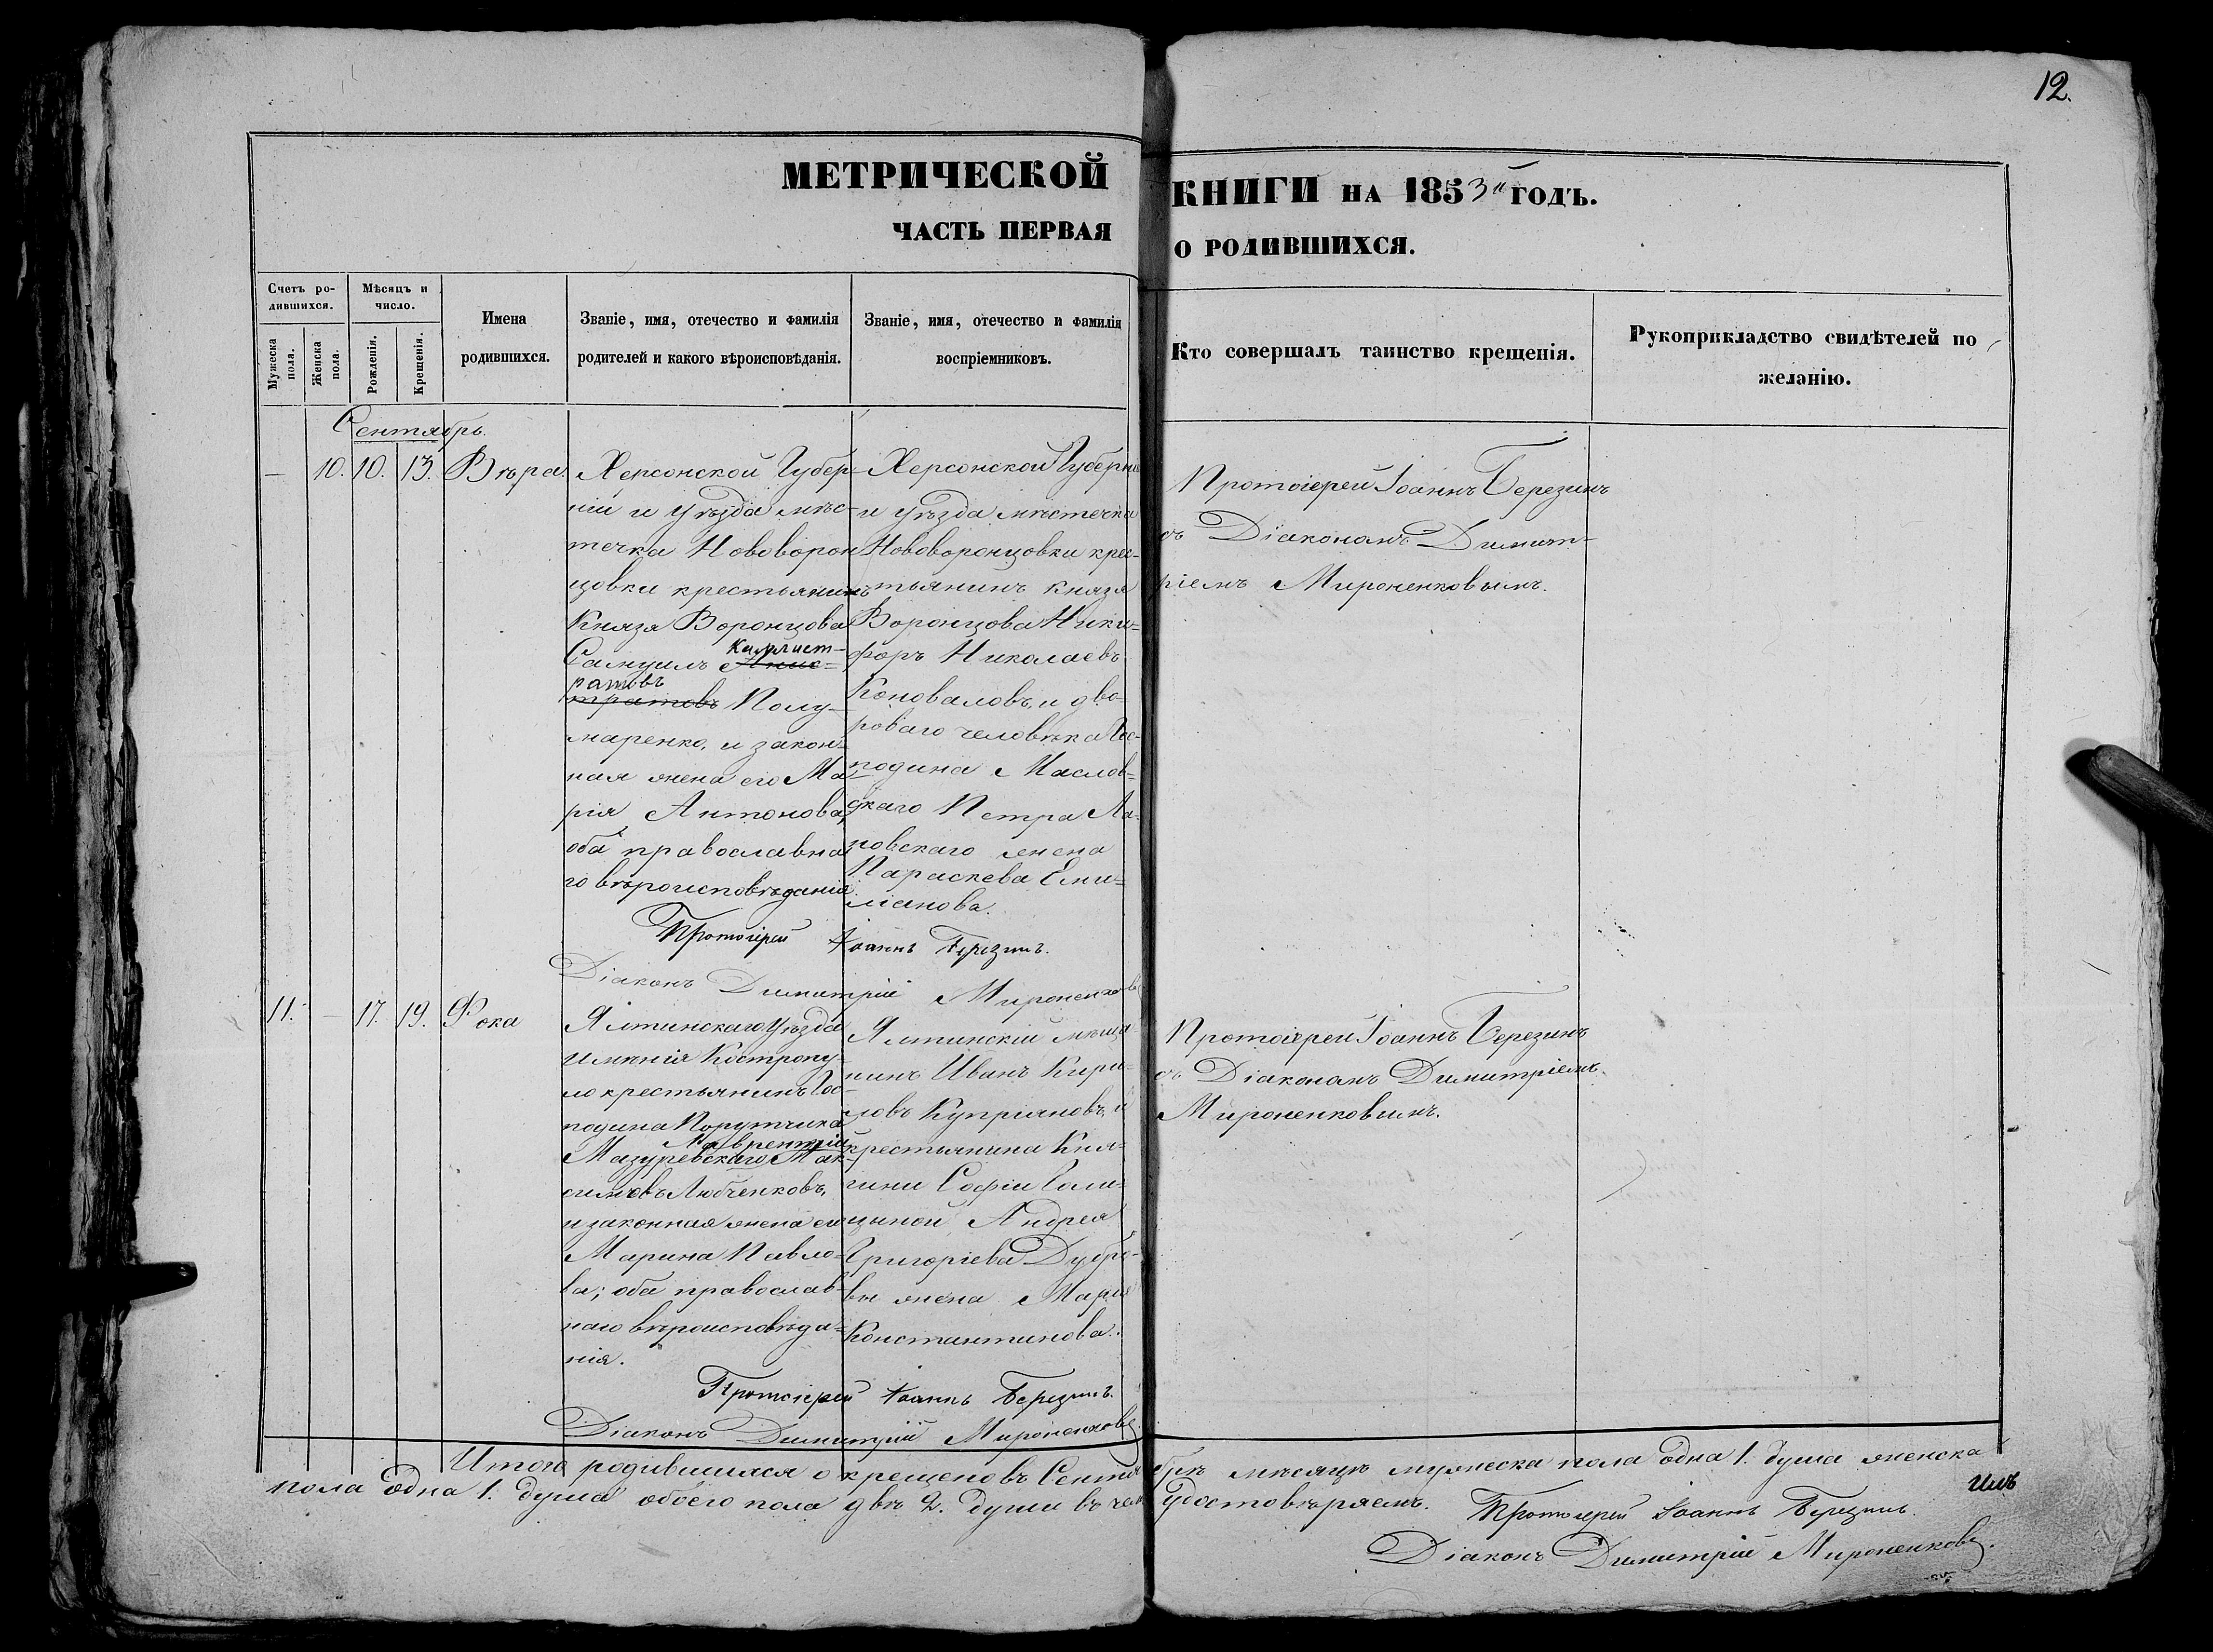 12.
МЕТРИЧЕСКОЙ КНИГИ НА 1853й ГОДЪ.
ЧАСТЬ ПЕРВАЯ О РОДИВШИХСЯ.
Счетъ ро-
дившихся.
Мужеска
пола.
Женска
пола.
Мѣсяцъ и
число.
Рожденія.
Крещенія.
Имена
родившихся.
Званіе, имя, отечество и фамилія
родителей и какого вѣроисповѣданія.
Званіе, имя, отечество и фамилія
воспріемниковъ.
Кто совершалъ таинство крещенія.
Рукоприкладство свидѣтелей по
желанію.
Сентябрь.
— 10. 10. 13. Вѣра.
Херсонской Губер-
ніи и уѣзда мѣс-
течка Нововорон
цовки крестьянинъ
Князя Воронцова
Самуилъ Анис=
Каллист-
тратовъ Полу-
ратовъ
маренко, и закон-
ная жена его Ма
рія Антонова,
оба православна
го вѣроисповѣданія
Херсонской Губерніи
и уѣзда мѣстечка
Нововоронцовки крес-
тьянинъ князя
Воронцова Ники=
форъ Николаевъ
Коноваловъ, и дво-
роваго человѣка Гос-
подина Маслов=
скаго Петра Ла-
повскаго жена
Параскева Еми=
ліанова.
Протоіерей Іоаннъ Березинъ
съ Діакономъ Димит-
ріемъ Мироненковымъ.
Протоіерей Іоаннъ Березинъ.
Діаконъ Димитрій Мироненковъ
11. — 17. 19. Фока
Ялтинскаго уѣзда
имѣнія Кастропу-
ло крестьянинъ Гос-
подина Порутчика
Лаврентій
Мазуревскаго Мак-
симовъ Любченковъ,
и законная жена его
Марина Павло=
ва; оба православ-
наго вѣроисповѣда=
нія.
Ялтинскій мѣща
нинъ Иванъ Кири-
ловъ Купріяновъ, и
крестьянина Кня-
гини Софіи Голи-
цыной Андрея
Григоріева Дубро-
вы жена Марія
Константинова.
Протоіерей Іоаннъ Березинъ
съ Діакономъ Димитріемъ
Мироненковымъ.
Протоіерей Іоаннъ Березинъ.
Діаконъ Димитрій Мироненковъ.
Итого родившихся о крещено въ Сентябрѣ мѣсяцѣ мужеска пола одна 1. душа женска
пола одна 1. душа обоего пола двѣ 2. души въ чемъ удостовѣряемъ. Протоіерей Іоаннъ Березинъ.
Діаконъ Димитрій Мироненковъ.